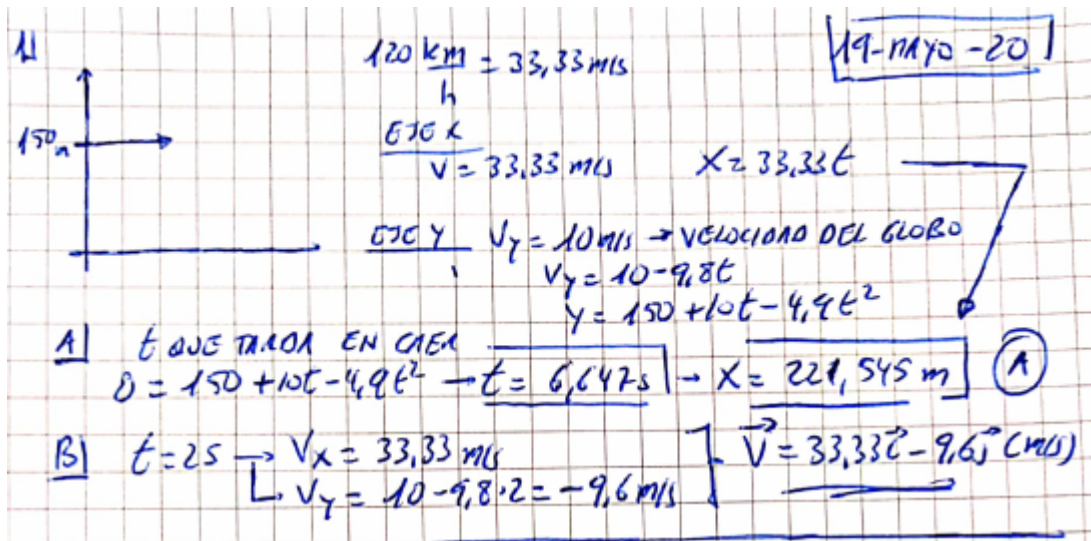 1|
19-MAYO-20
120 km/h = 33,33 m/s
150m
EJE X
V = 33,33 m/s X = 33,33t
EJE Y Vy = 10 m/s → VELOCIDAD DEL GLOBO
Vy = 10 - 9,8t
y = 150 + 10t - 4,9t²
A| t QUE TARDA EN CAER
0 = 150 + 10t - 4,9t² → t = 6,647s → X = 221,545 m A
B| t = 2s → Vx = 33,33 m/s
Vy = 10 - 9,8·2 = -9,6 m/s
V⃗ = 33,33i⃗ - 9,6j⃗ (m/s)